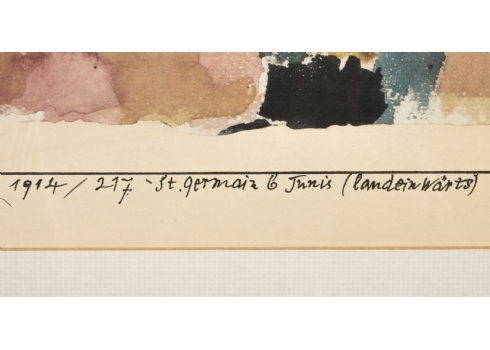 1914/217 - St. germain b Tunis (landeinwärts)